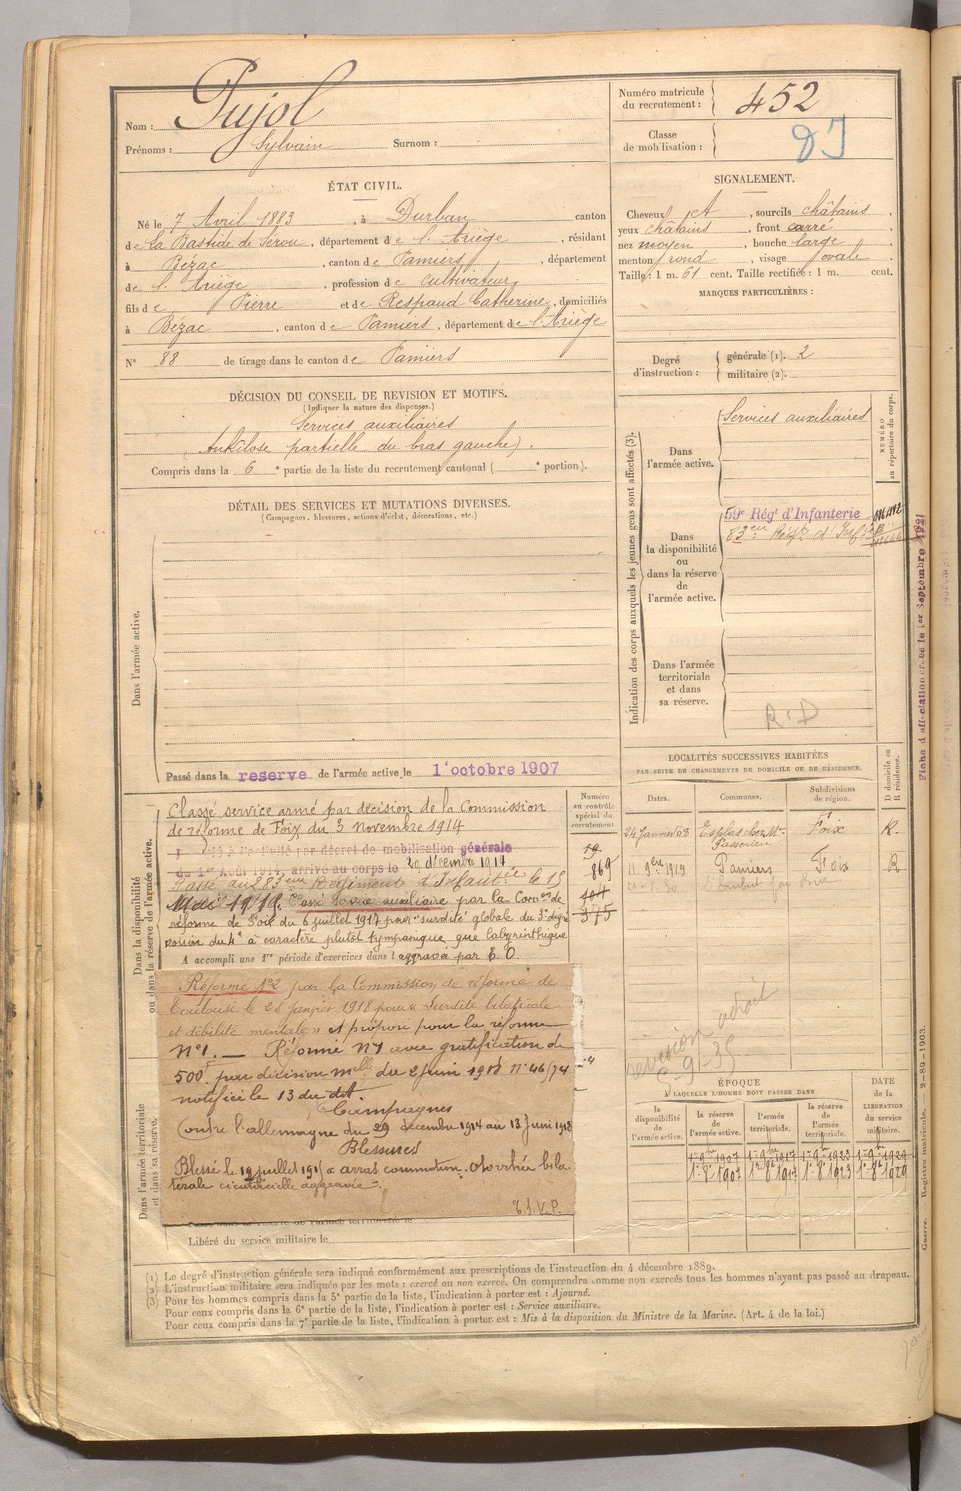 Nom : Pujol
Prénoms : Sylvain Surnom :
Numéro matricule du recrutement : 452
Classe de mobilisation :
ÉTAT CIVIL.
Né le 7 Avril 1883, à Durban canton
de La Bastide de Serou, département de l'Ariège, résidant
à Bézac, canton de Pamiers, département
de l'Ariège, profession de cultivateur
fils de Pierre et de Respaud Catherine, domiciliés
à Bézac, canton de Pamiers, département de l'Ariège
N° 88 de tirage dans le canton de Pamiers
SIGNALEMENT.
Cheveux et, sourcils châtains,
yeux châtains, front carré
nez moyen, bouche large
menton rond, visage ovale
Taille : 1 m. 61 cent. Taille rectifiée : 1 m. cent.
MARQUES PARTICULIÈRES :
Degré d'instruction :
générale (1). 2
militaire (2).
DÉCISION DU CONSEIL DE REVISION ET MOTIFS.
(Indiquer la nature des dispenses.)
Services auxiliaires
(Ankilose partielle du bras gauche).
Compris dans la 6e partie de la liste du recrutement cantonal ( e portion).
DÉTAIL DES SERVICES ET MUTATIONS DIVERSES.
(Campagnes, blessures, actions d'éclat, décorations, etc.)
Dans l'armée active.
Passé dans la reserve de l'armée active le 1' octobre 1907
Indication des corps auxquels les jeunes gens sont affectés (3).
NUMÉRO au répertoire du corps.
Dans l'armée active.
Services auxiliaires
Dans la disponibilité ou dans la réserve de l'armée active.
59e Régt d'Infanterie
83eme Régt d'Inf.
Dans l'armée territoriale et dans sa réserve.
R.D
Dans la disponibilité ou dans la réserve de l'armée active.
Classé service armé par décision de la Commission
de réforme de Foix du 3 novembre 1914
à l'activité par décret de mobilisation générale
du 1er Août 1914, arrivé au corps le 29 décembre 1914
Passé au 283eme Régiment d'Infantie le 15
Mai 1917. Classé service auxiliaire par la Comon de
réforme de Foix du 6 juillet 1917 pour "surdité globale du 3e degré
voisin du 4e à caractère plutôt tympanique que labyrinthique
A accompli une 1re période d'exercices dans l aggravé par E. O.
Numéro au contrôle spécial du recrutement.
869
375
Réforme N°2 par la Commission de réforme de
Toulouse le 28 Janvier 1918 pour « Surdité bilatérale
et débilité mentale » et proposé pour la réforme
N°1. — Réformé N°1 avec gratification de
500f par décision mlle du 2 juin 1918 N° 46/74
notifiée le 13 du dit.
Campagnes
Contre l'allemagne du 29 décembre 1914 au 13 Juin 1918
Blessures
Blessé le 19 juillet 191 à arras commotion. Otorrhée bila-
térale cicatricielle aggravée.
T.S.V.P.
Dans l'armée territoriale et dans sa réserve.
Libéré du service militaire le
LOCALITÉS SUCCESSIVES HABITÉES
PAR SUITE DE CHANGEMENTS DE DOMICILE OU DE RÉSIDENCE.
Dates. Communes. Subdivisions de région. D domicile ou R résidence.
24 Janvier 08 Esplas chez Mr Passerieu Foix R.
11 9bre 1919 Pamiers Foix R
revision
5-9-35
ÉPOQUE
À LAQUELLE L'HOMME DOIT PASSER DANS
la disponibilité de l'armée active.
la réserve de l'armée active.
l'armée territoriale.
la réserve de l'armée territoriale.
DATE de la LIBÉRATION du service militaire.
1er 8bre 1907 1er 8bre 1917 1er 8bre 1923 1er 8bre 1929
(1) Le degré d'instruction générale sera indiqué conformément aux prescriptions de l'instruction du 4 décembre 1889.
(2) L'instruction militaire sera indiquée par les mots : exercé ou non exercé. On comprendra comme non exercés tous les hommes n'ayant pas passé au drapeau.
(3) Pour les hommes compris dans la 5e partie de la liste, l'indication à porter est : Ajourné.
Pour ceux compris dans la 6e partie de la liste, l'indication à porter est : Service auxiliaire.
Pour ceux compris dans la 7e partie de la liste, l'indication à porter est : Mis à la disposition du Ministre de la Marine. (Art. 4 de la loi.)
Guerre. Registre matricule. 2-89-1903.